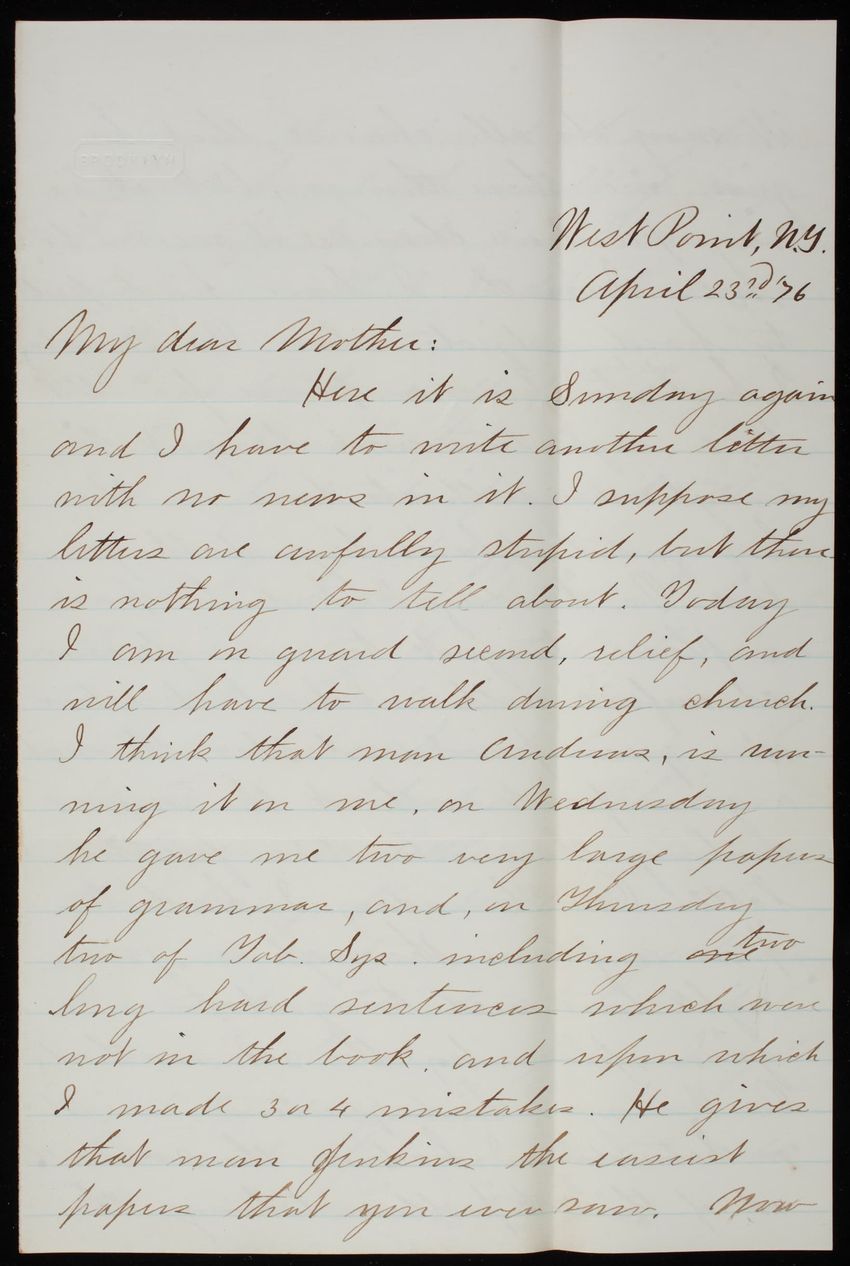 BROOKLYN
West Point, N.Y.
April 23rd '76
My dear Mother:
Here it is Sunday again
and I have to write another letter
with no news in it. I suppose my
letters are awfully stupid, but there
is nothing to tell about. Today
I am on guard second, relief, and
will have to walk during church.
I think that man Andrews, is run-
ning it on me, on Wednesday
he gave me two very large papers
of grammar, and, on Thursday
two of Tab. Sys. including one two
long hard sentences which were
not in the book, and upon which
I made 3 or 4 mistakes. He gives
that man Jenkins the easiest
papers that you ever saw. Now